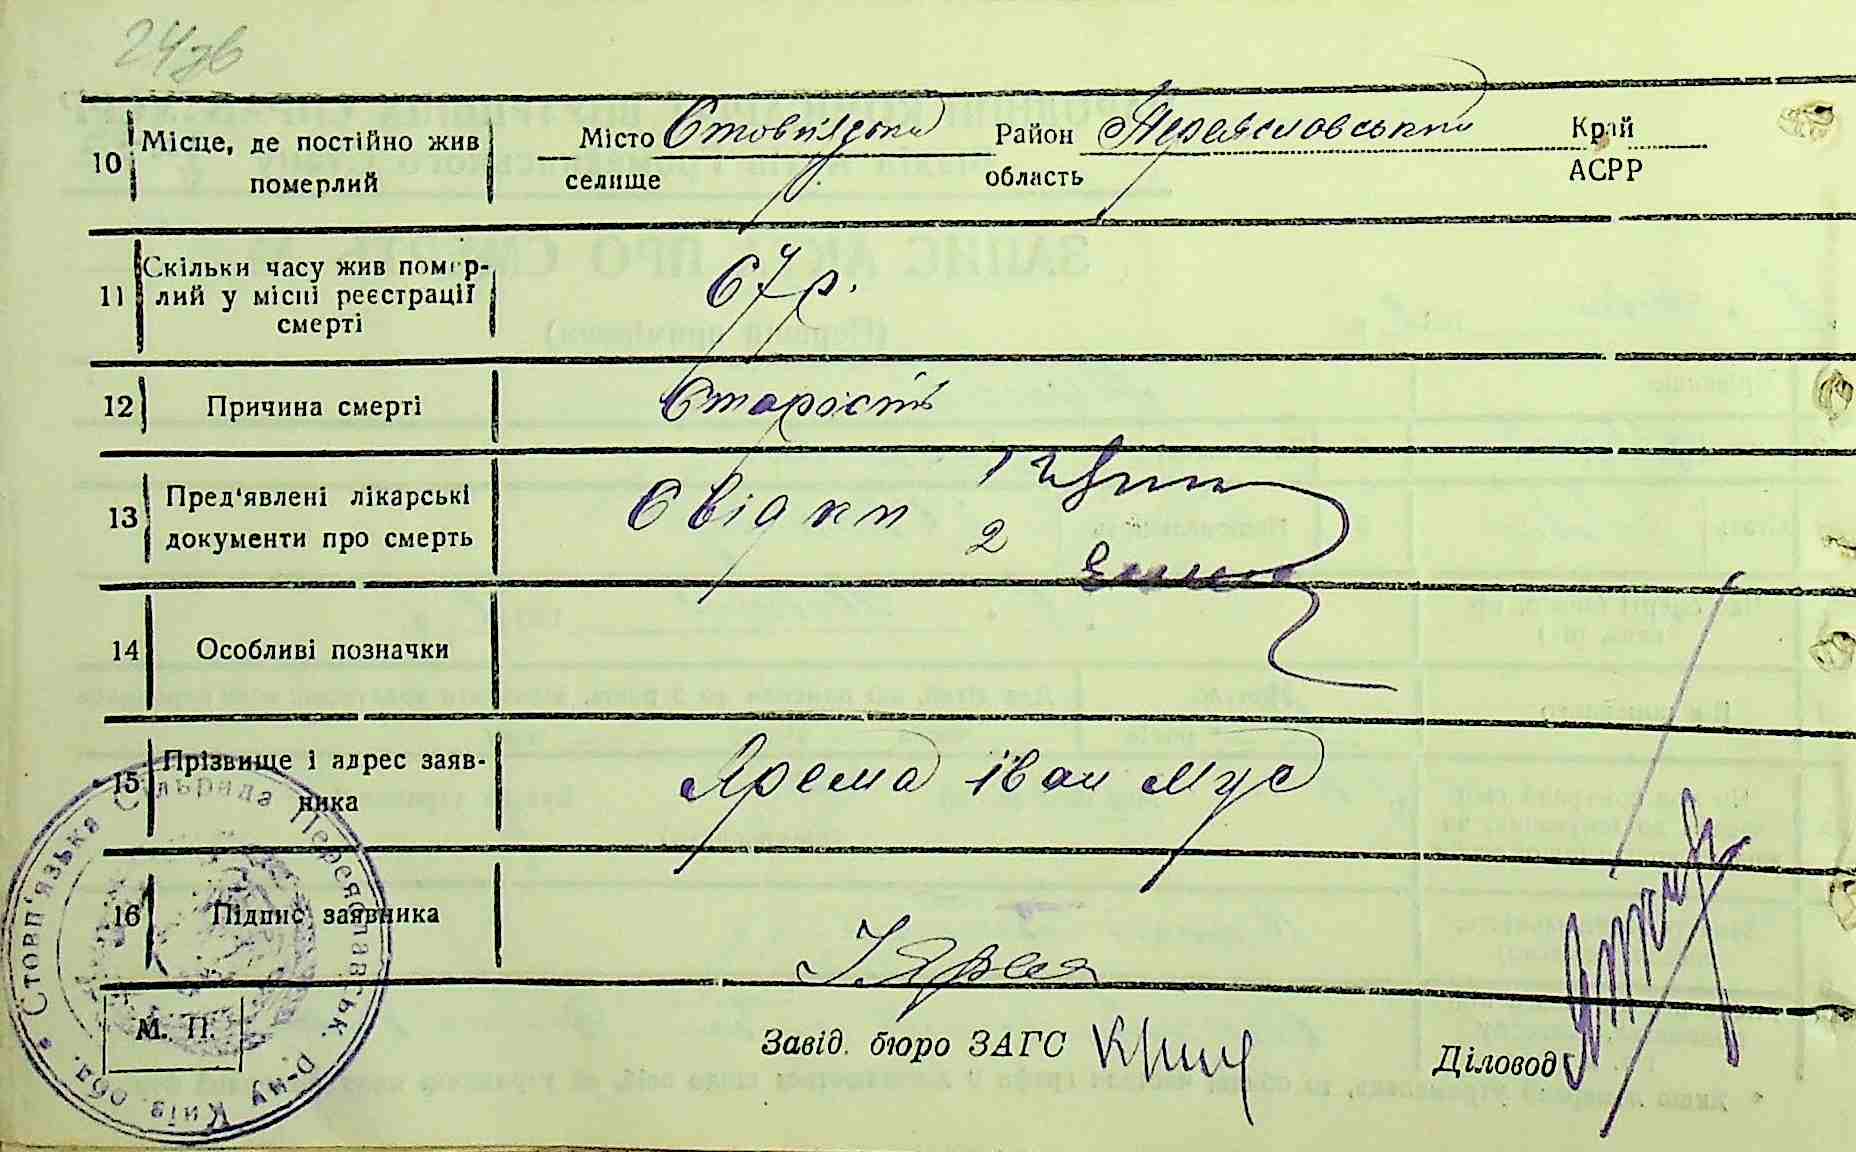 24зв
10 Місце, де постійно жив померлий
Місто Стовп'язьки Район Переясловський Край
селище область АСРР
11 Скільки часу жив помер-
лий у місці реєстрації
смерті
67 р.
12 Причина смерті Старість
13 Пред'явлені лікарські
документи про смерть
Свідки 1
2
14 Особливі позначки
15 Прізвище і адрес заяв-
ника
Ярема Іван Мус
16 Підпис заявника
І Ярема
М. П.
Завід. бюро ЗАГС
Діловод
Стовп'язька Сільрада Переяславськ. р-ну Київ. обл.